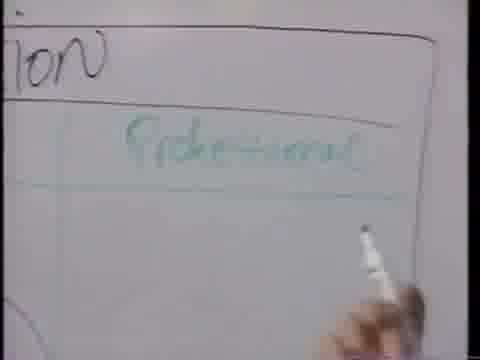 ion
Professional